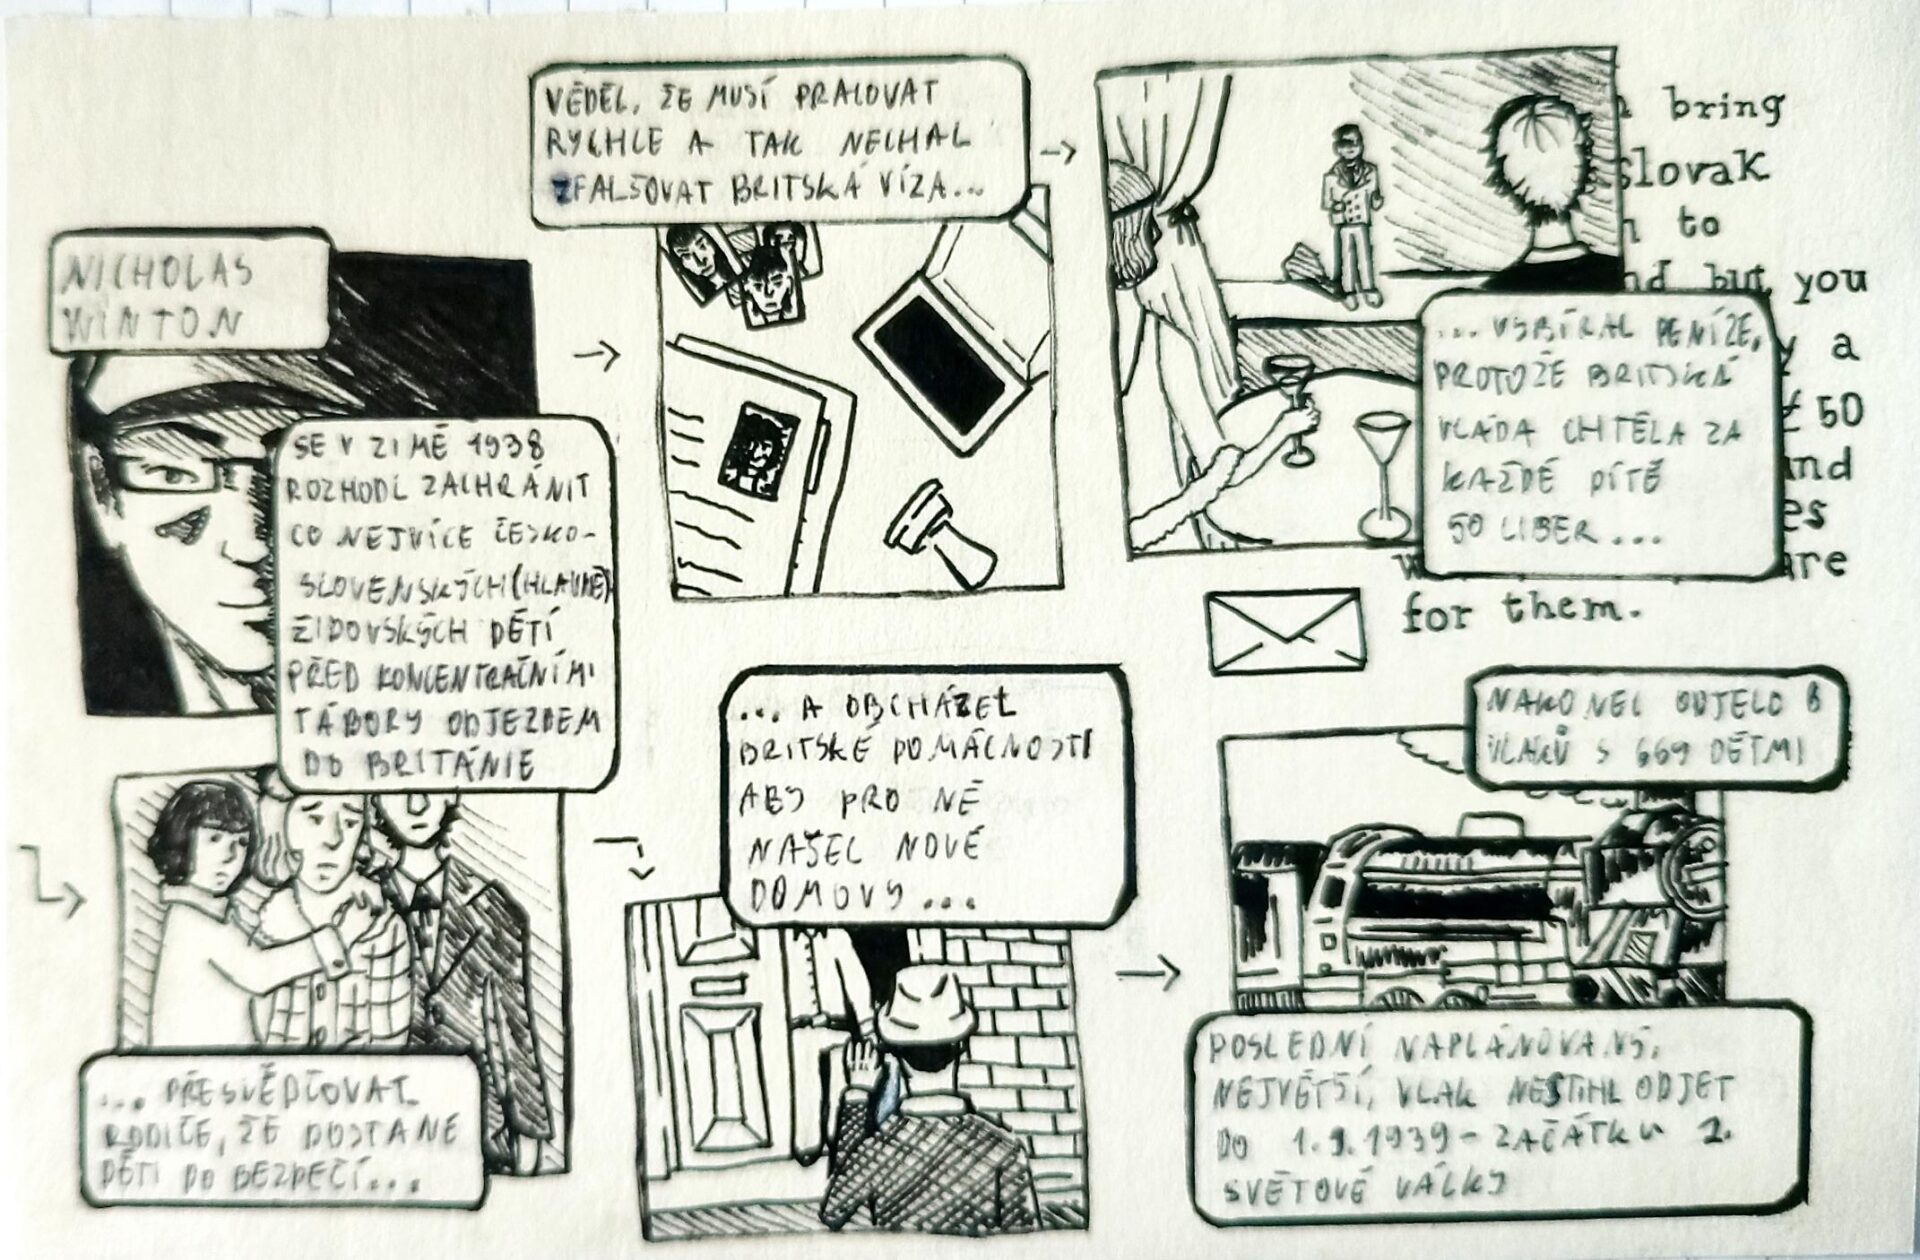 NICHOLAS
WINTON
SE V ZIMĚ 1938
ROZHODL ZACHRÁNIT
CO NEJVÍCE ČESKO-
SLOVENSKÝCH (HLAVNĚ)
ŽIDOVSKÝCH DĚTÍ
PŘED KONCENTRAČNÍMI
TÁBORY ODJEZDEM
DO BRITÁNIE
VĚDĚL, ŽE MUSÍ PRACOVAT
RYCHLE A TAK NECHAL
ZFALŠOVAT BRITSKÁ VÍZA...
... VYBÍRAL PENÍZE,
PROTOŽE BRITSKÁ
VLÁDA CHTĚLA ZA
KAŽDÉ DÍTĚ
50 LIBER...
bring
slovak
to
but you
a
£50
and
are
for them.
... PŘESVĚDČOVAL
RODIČE, ŽE DOSTANE
DĚTI DO BEZPEČÍ...
... A OBCHÁZEL
BRITSKÉ DOMÁCNOSTI
ABY PRO NĚ
NAŠEL NOVÉ
DOMOVY...
NAKONEC ODJELO 8
VLAKŮ S 669 DĚTMI
POSLEDNÍ NAPLÁNOVANÝ,
NEJVĚTŠÍ, VLAK NESTIHL ODJET
DO 1.9.1939 - ZAČÁTKU 2.
SVĚTOVÉ VÁLKY